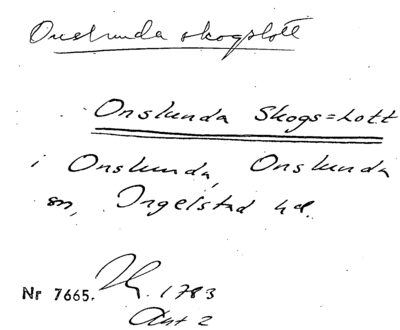 Onslunda skogslott
Onslunda Skogs=Lott
i Onslunda, Onslunda
sn, Ingelstad hd.
Nr 7665. 1783
Akt 2